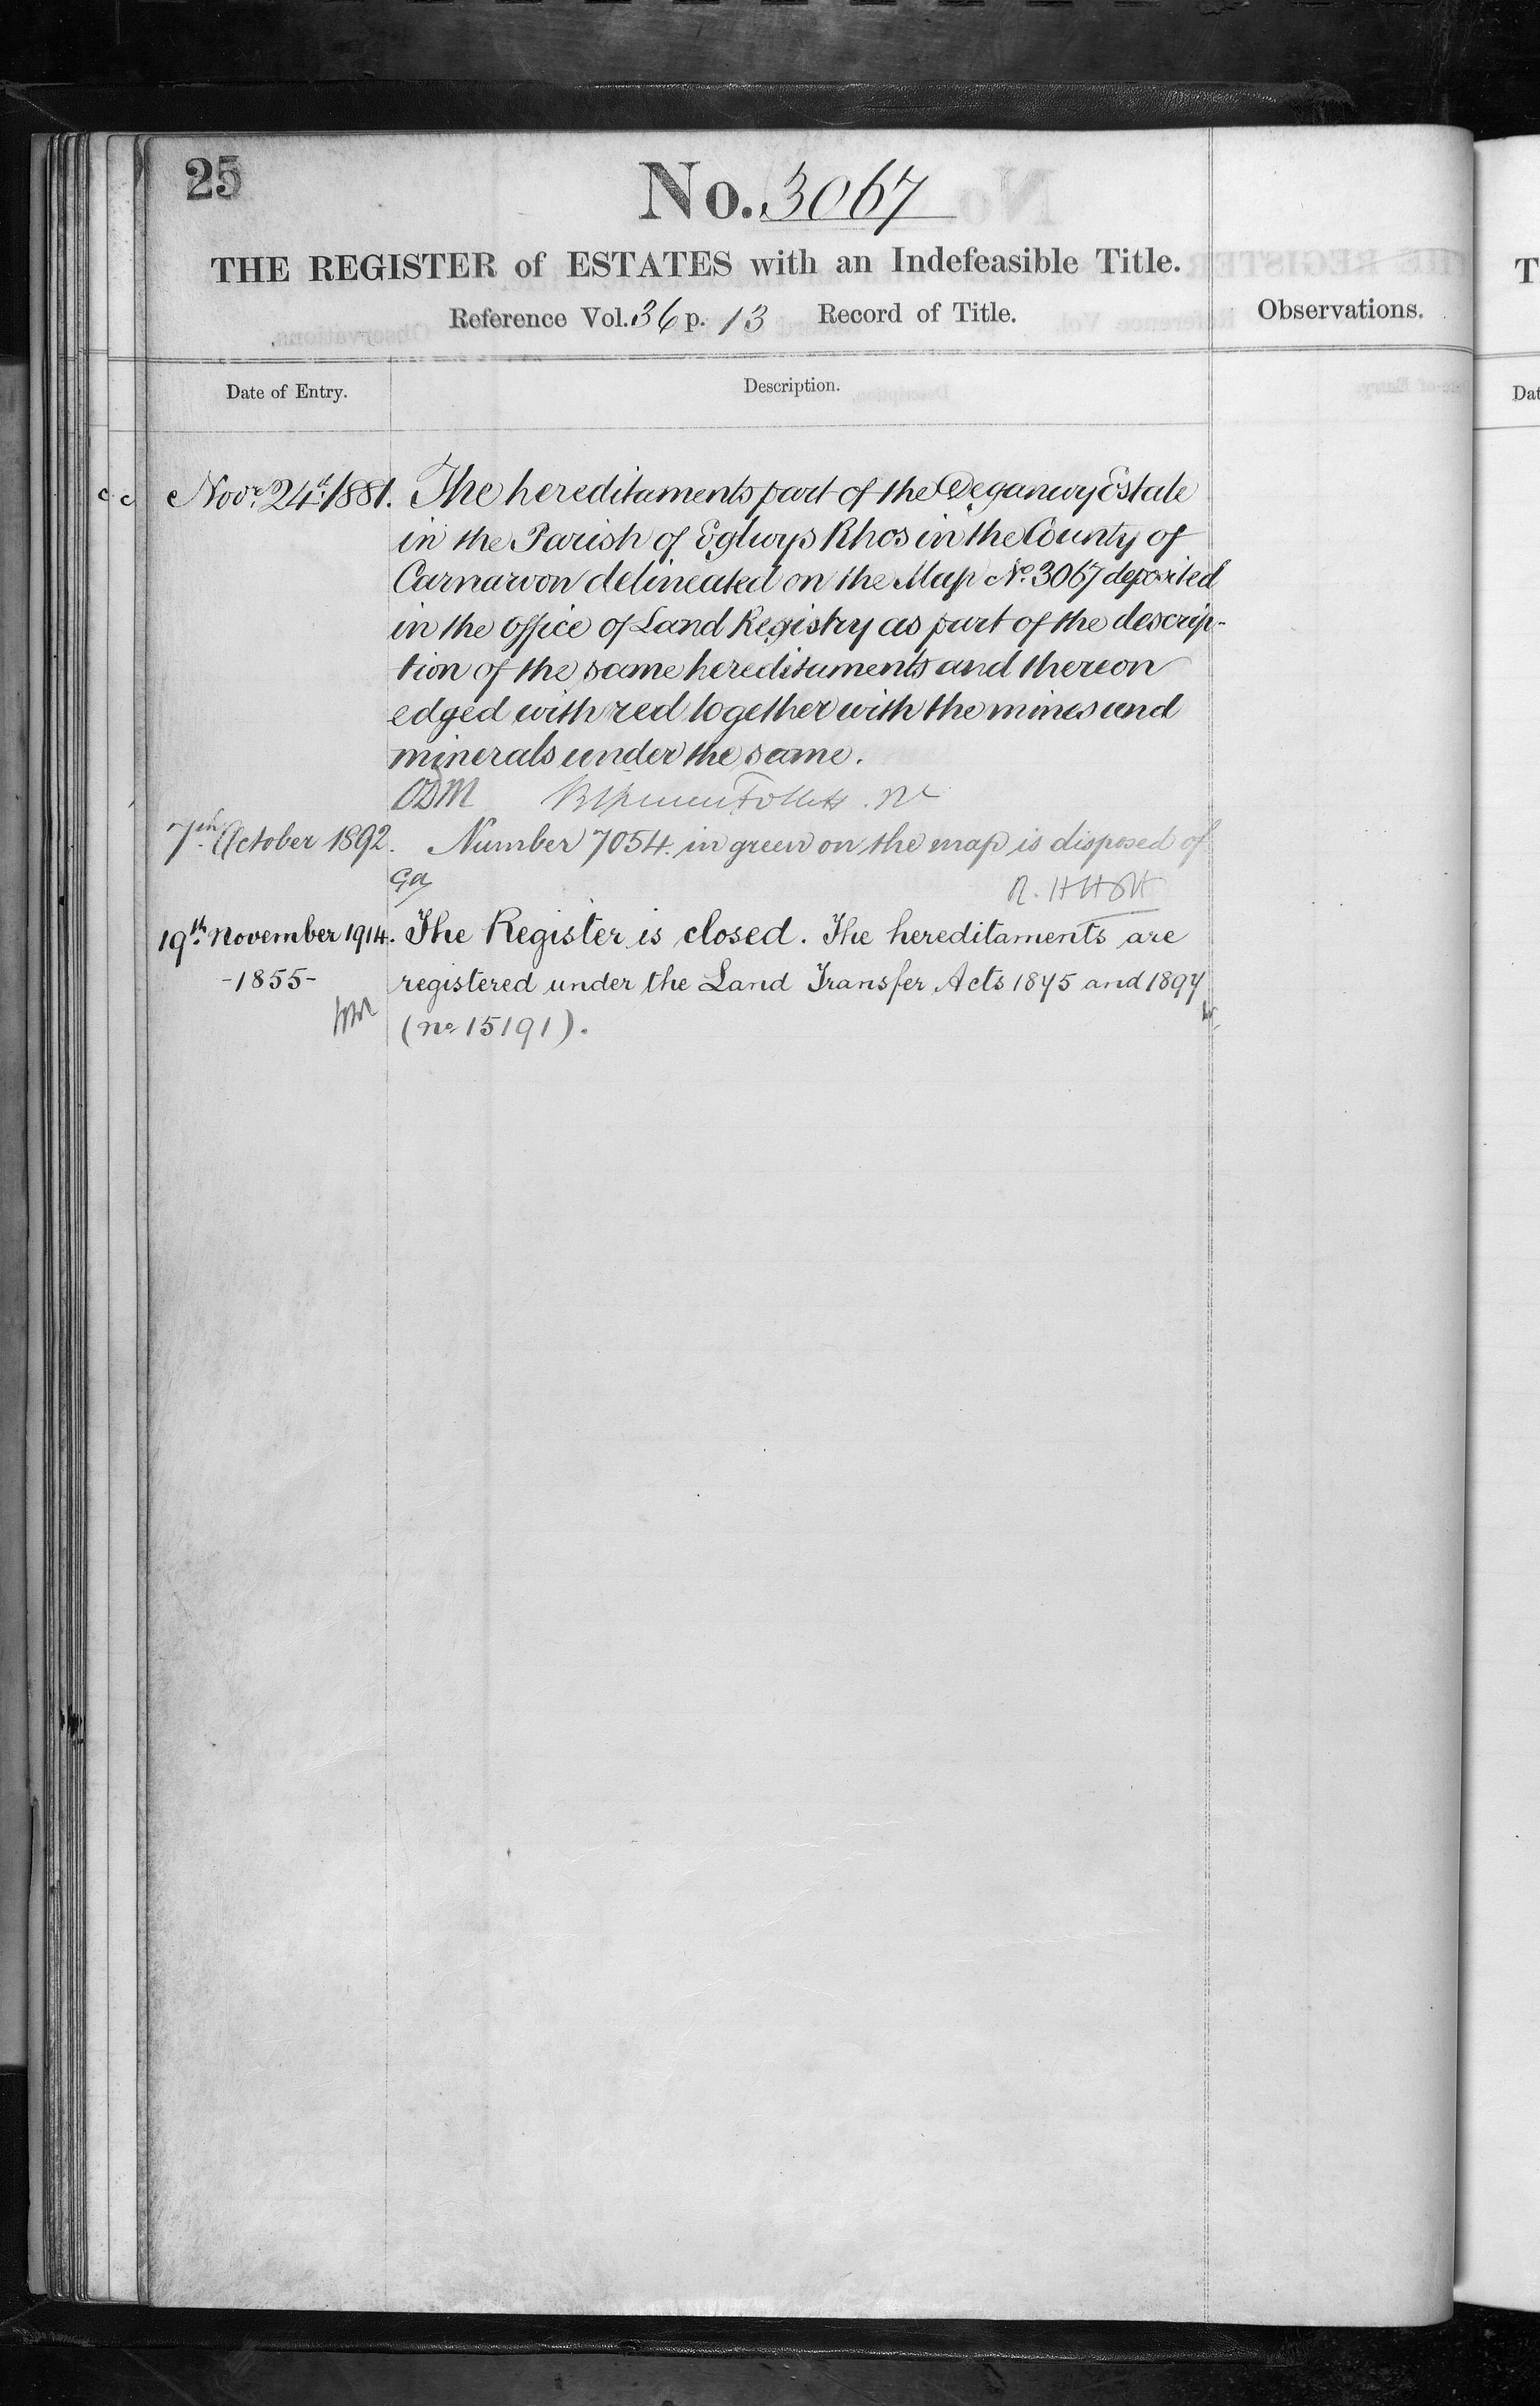 25
No. 3067
THE REGISTER of ESTATES with an Indefeasible Title.
Reference Vol. 36 p. 13 Record of Title.
Observations.
Date of Entry.
Description.
Novr. 24th 1881. The hereditaments part of the Deganwy Estate
in the Parish of Eglwys Rhos in the County of
Carnarvon delineated on the Map No. 3067 deposited
in the office of Land Registry as part of the descrip-
tion of the same hereditaments and thereon
edged with red together with the mines and
minerals under the same.
ODM
7th October 1892. Number 7054. in green on the map is disposed of
19th November 1914. The Register is closed. The hereditaments are
-1855- registered under the Land Transfer Acts 1875 and 1897
(no. 15191).